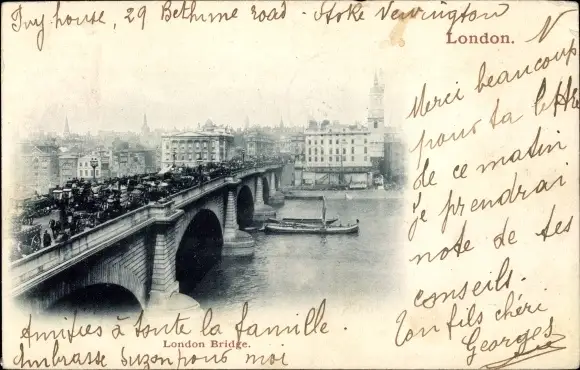 Ivy house, 29 Bethune road - Stoke Newington
London. N
Merci beaucoup
pour ta lettre
de ce matin
je prendrai
note de tes
conseils.
Ton fils chéri
Georges
Amitiés à toute la famille.
London Bridge.
Embrasse Suzon pour moi